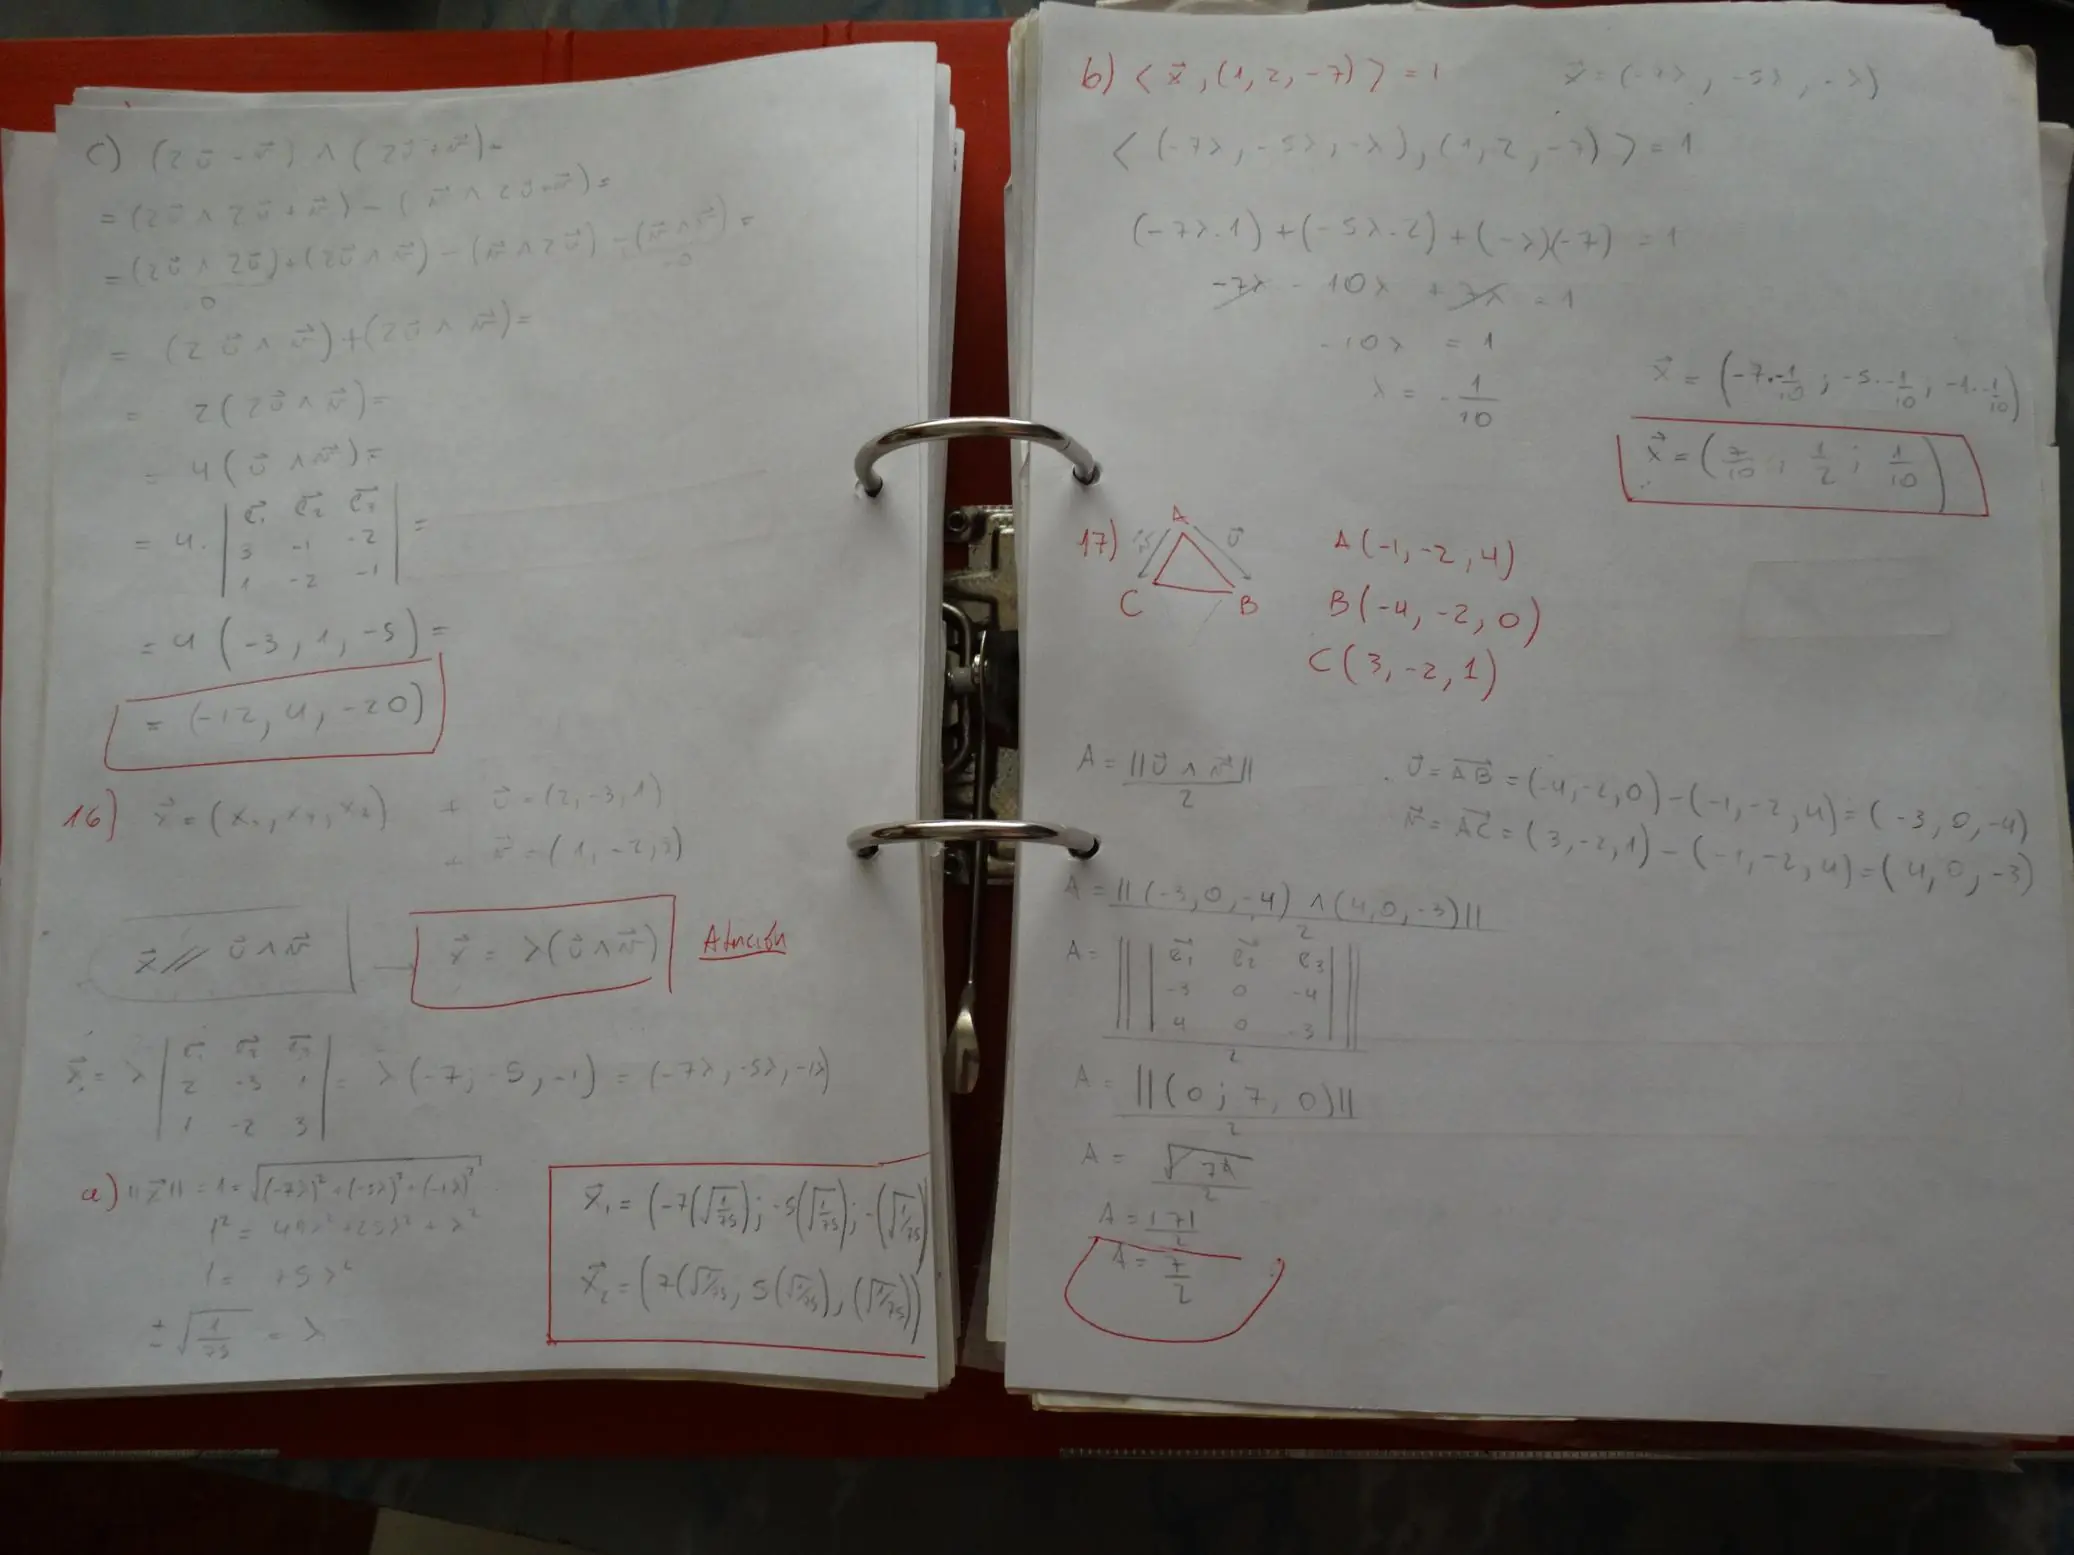 c) (2u⃗ - v⃗) ∧ (2u⃗ + v⃗) =
= (2u⃗ ∧ 2u⃗ + v⃗) - (v⃗ ∧ 2u⃗ + v⃗) =
= (2u⃗ ∧ 2u⃗) + (2u⃗ ∧ v⃗) - (v⃗ ∧ 2u⃗) - (v⃗ ∧ v⃗) =
0 0
= (2u⃗ ∧ v⃗) + (2u⃗ ∧ v⃗) =
= 2(2u⃗ ∧ v⃗) =
= 4(u⃗ ∧ v⃗) =
= 4. | e⃗1 e⃗2 e⃗3 | =
3 -1 -2
1 -2 -1
= 4(-3, 1, -5) =
= (-12, 4, -20)
16) x⃗ = (x1, x2, x3) + u⃗ = (2, -3, 1)
+ v⃗ = (1, -2, 3)
x⃗ // u⃗ ∧ v⃗ → x⃗ = λ(u⃗ ∧ v⃗) Atención
x⃗ = λ | e⃗1 e⃗2 e⃗3 | = λ(-7; -5, -1) = (-7λ, -5λ, -1λ)
2 -3 1
1 -2 3
a) ||x⃗|| = 1 = √((-7λ)² + (-5λ)² + (-1λ)²)
1² = 49λ² + 25λ² + λ²
1 = 75λ²
±√(1/75) = λ
x⃗1 = (-7(√1/75); -5(√1/75); -(√1/75))
x⃗2 = (7(√1/75, 5(√1/75), (√1/75))
b) < x⃗, (1, 2, -7) > = 1 x⃗ = (-7λ, -5λ, -λ)
< (-7λ, -5λ, -λ), (1, 2, -7) > = 1
(-7λ.1) + (-5λ.2) + (-λ)(-7) = 1
-7λ - 10λ + 7λ = 1
-10λ = 1
λ = -1/10
x⃗ = (-7.-1/10; -5.-1/10; -1.-1/10)
x⃗ = (7/10, 1/2; 1/10)
17) A u⃗ v⃗ C B
A(-1, -2, 4)
B(-4, -2, 0)
C(3, -2, 1)
A = ||u⃗ ∧ v⃗||/2
u⃗ = AB⃗ = (-4, -2, 0) - (-1, -2, 4) = (-3, 0, -4)
v⃗ = AC⃗ = (3, -2, 1) - (-1, -2, 4) = (4, 0, -3)
A = ||(-3, 0, -4) ∧ (4, 0, -3)||/2
A = || | e⃗1 e⃗2 e⃗3 | ||
-3 0 -4
4 0 -3
2
A = ||(0; 7, 0)||/2
A = |7|/2
A = 7/2